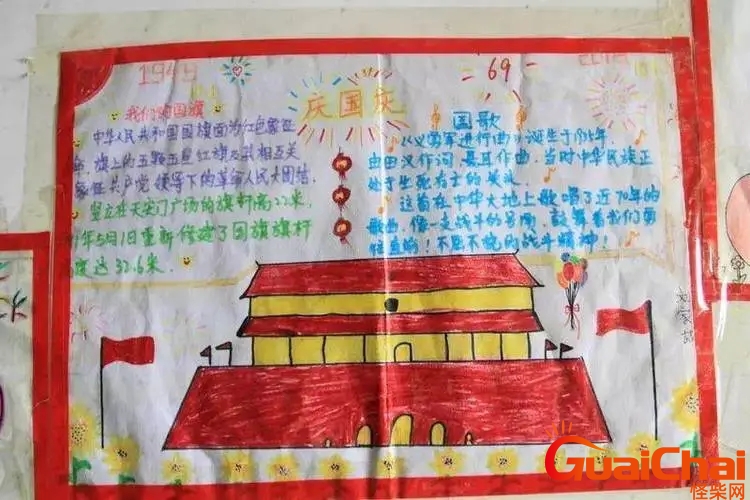 1949
我们的国旗
中华人民共和国国旗面为红色象征
旗上的五颗五星红旗及其相互关
象征共产党领导下的革命人民大团结
竖立在天安门广场的旗杆高22米
年5月1日重新修建了国旗旗杆
度达32.6米.
庆国庆
-69-
国歌
《义勇军进行曲》诞生于
由田汉作词,聂耳作曲,当时中华民族正
处于生死存亡的关头
这首在中华大地上歌唱了近70年的
歌曲,像一支战斗的号角,鼓舞着我们勇
往直前!不屈不挠的战斗精神!
GuaiChai
怪柴网